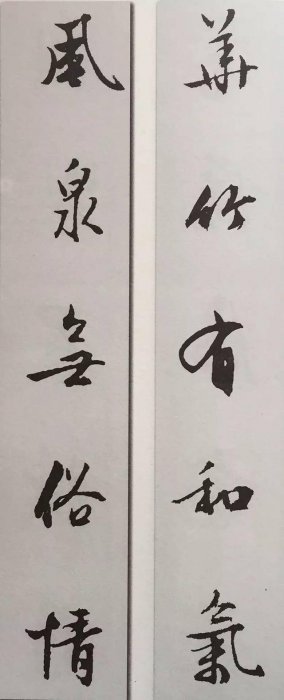 華竹有和氣
風泉無俗情